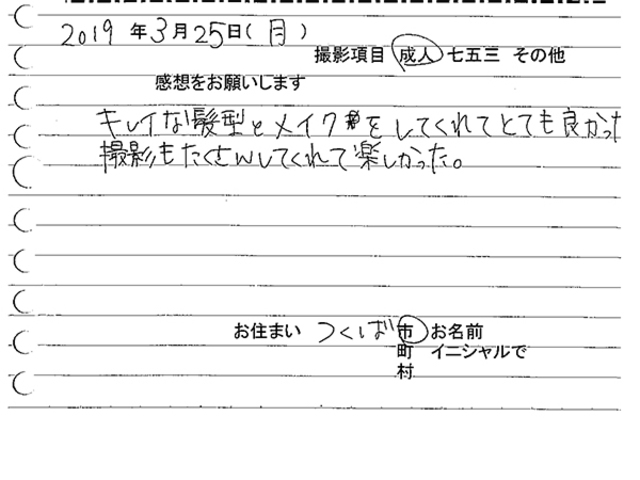 2019年3月25日(月)
撮影項目 成人 七五三 その他
感想をお願いします
キレイな髪型とメイクをしてくれてとても良かった
撮影もたくさんしてくれて楽しかった。
お住まい つくば 市 お名前
町 イニシャルで
村